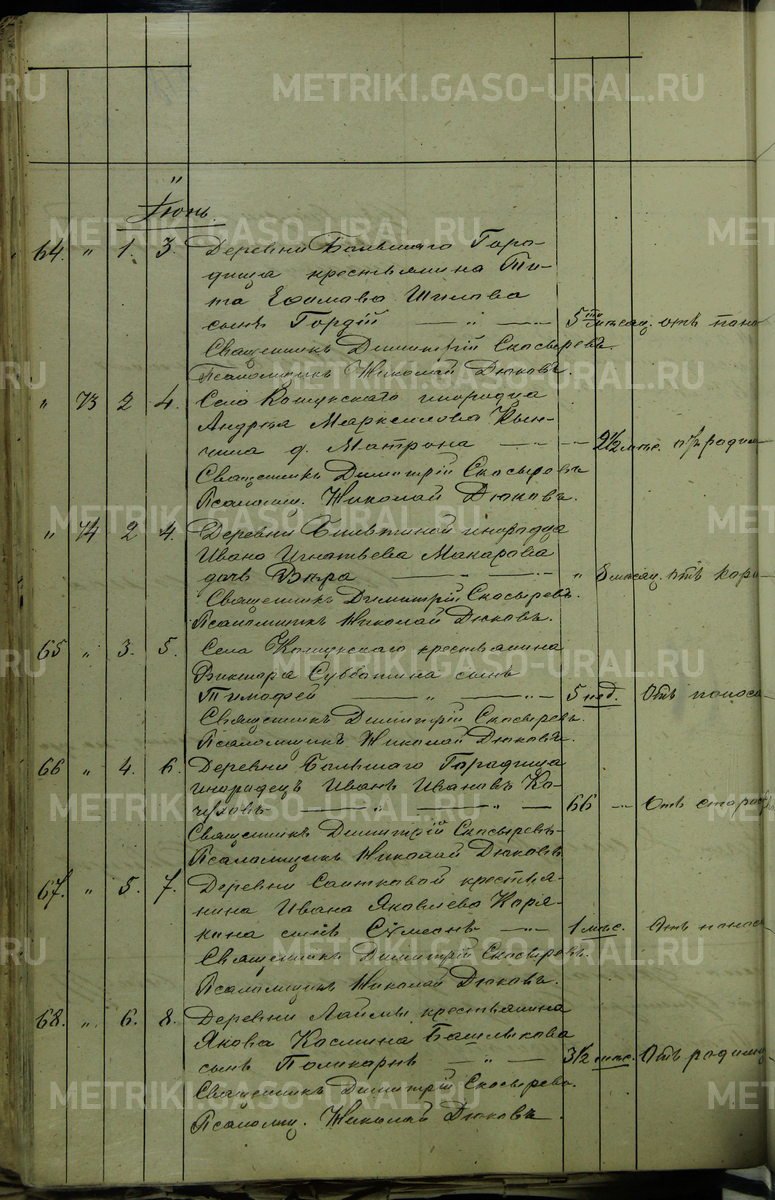 Іюнь
64. " 1. 3. Деревни Большаго Горо-
дища крестьянина Ти-
та Ефимова Шилова
сынъ Гордій — " — 5ти мѣсяц. отъ поно
Священникъ Димитрій Скосыревъ.
Псаломщикъ Николай Дюковъ.
" 73 2 4. Села Кошукскаго инородца
Андрея Марксилова
д. Матрона — 2½ мѣс. родим
Священникъ Димитрій Скосыревъ
Псаломщ. Николай Дюковъ.
" 74 2 4. Деревни инородца
Ивана Игнатьева Макарова
дочь Вѣра — " 8 мѣсяц. отъ кори
Священникъ Димитрій Скосыревъ.
Псаломщикъ Николай Дюковъ.
65 " 3. 5. Села Кошукскаго крестьянина
Виктора Субботина сынъ
Тимофей — " — " — 5 нед. Отъ поноса
Священникъ Димитрій Скосыревъ.
Псаломщикъ Николай Дюковъ.
66 " 4. 6. Деревни Большаго Городища
инородецъ Иванъ Ивановъ Ко-
чуловъ — " — " — 66 — Отъ старос
Священникъ Димитрій Скосыревъ
Псаломщикъ Николай Дюковъ
67. " 5. 7. Деревни Саитковой крестья-
нина Ивана Яковлева Коря-
кина сынъ Сѵмеонъ — 1 мѣс. Отъ поноса
Священникъ Димитрій Скосыревъ.
Псаломщикъ Николай Дюковъ.
68. " 6. 8. Деревни Лаймы крестьянина
Якова Космина Башлыкова
сынъ Поликарпъ — " — 3½ мѣс. Отъ родимц
Священникъ Димитрій Скосыревъ.
Псаломщ. Николай Дюковъ.
METRIKI.GASO-URAL.RU